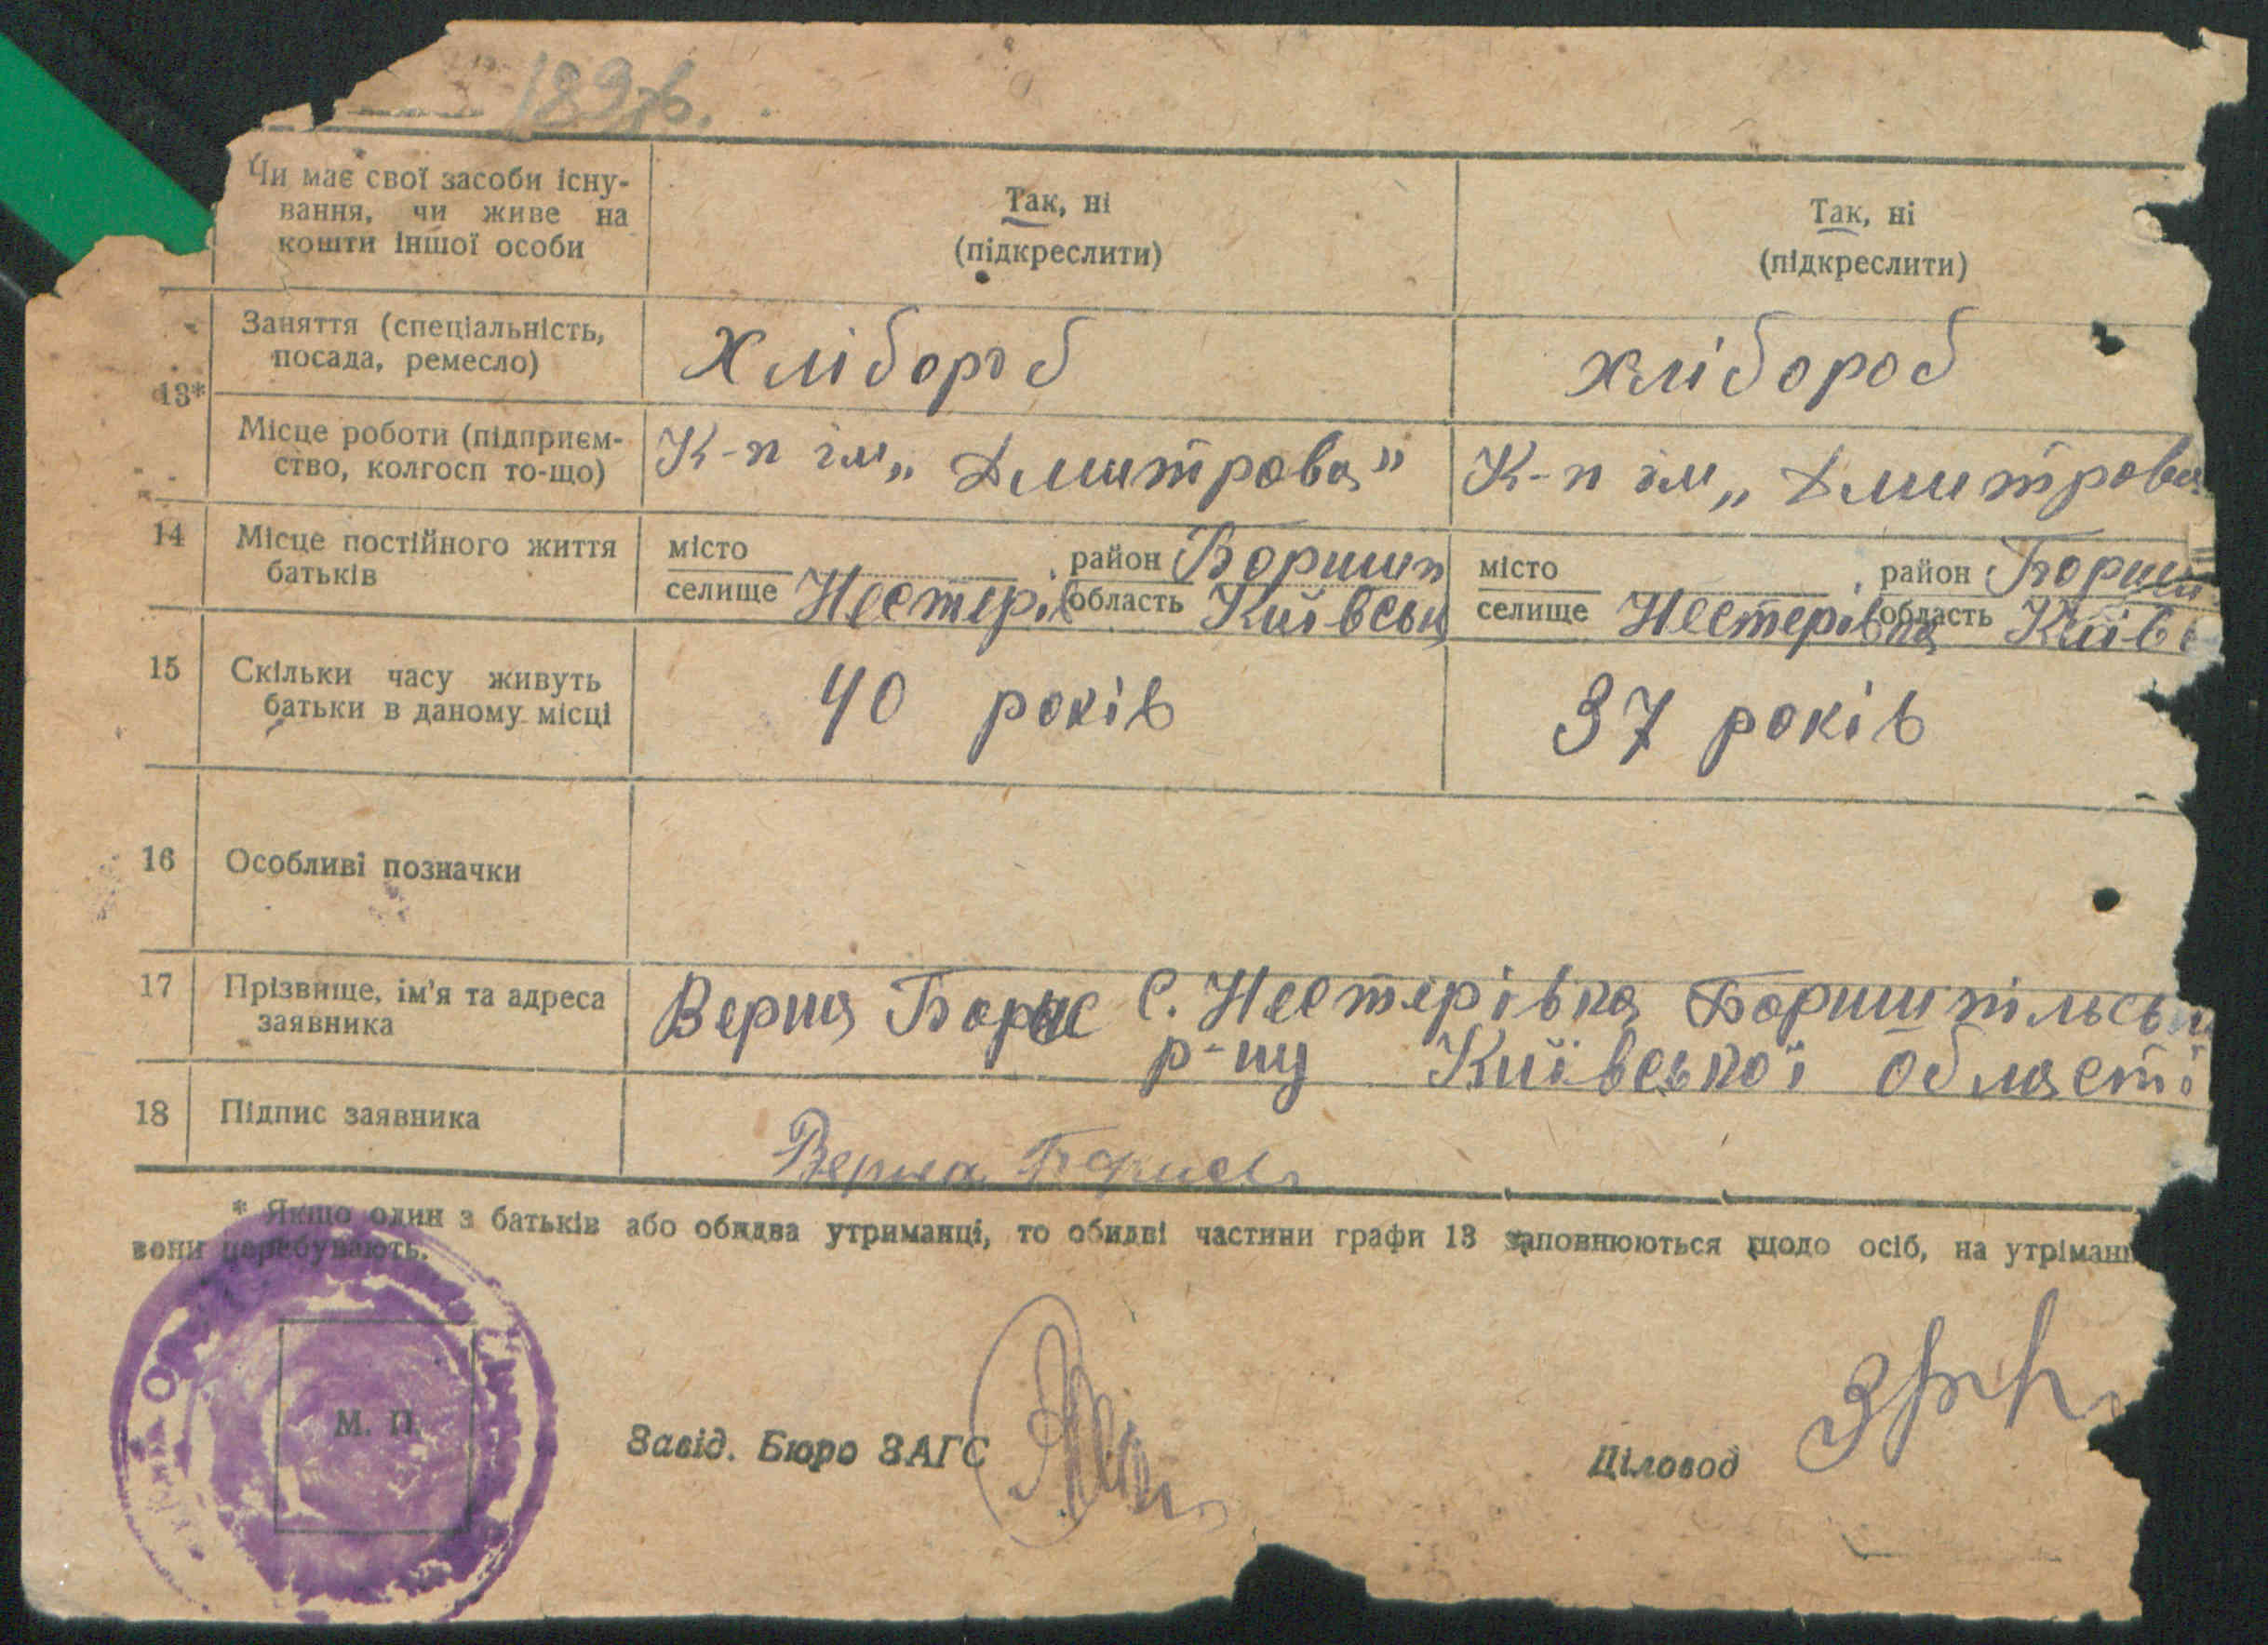 189 зв.
Чи має свої засоби існу-
вання, чи живе на
кошти іншої особи
Так, ні
(підкреслити)
Так, ні
(підкреслити)
13*
Заняття (спеціальність,
посада, ремесло)
Хлібороб
хлібороб
Місце роботи (підприєм-
ство, колгосп то-що)
К-п ім „Дмитрова"
К-п ім „Дмитрова
14
Місце постійного життя
батьків
місто
селище Нестерів
район Боришп
область Київськ
місто
селище Нестерівка
район Бориш
область Київ
15
Скільки часу живуть
батьки в даному місці
40 років
37 років
16
Особливі позначки
17
Прізвище, ім'я та адреса
заявника
Верша Борис С. Нестерівка Боришпільськ
р-ну Київської області
18
Підпис заявника
Борис
* Якщо один з батьків або обидва утриманці, то обидві частини графи 13 заповнюються щодо осіб, на утріманн
вони перебувають.
М. П.
Завід. Бюро ЗАГС
Діловод